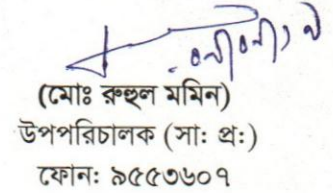 (মোঃ রুহুল মমিন)
উপপরিচালক (সাঃ প্রঃ)
ফোনঃ ৯৫৫৩৬০৭